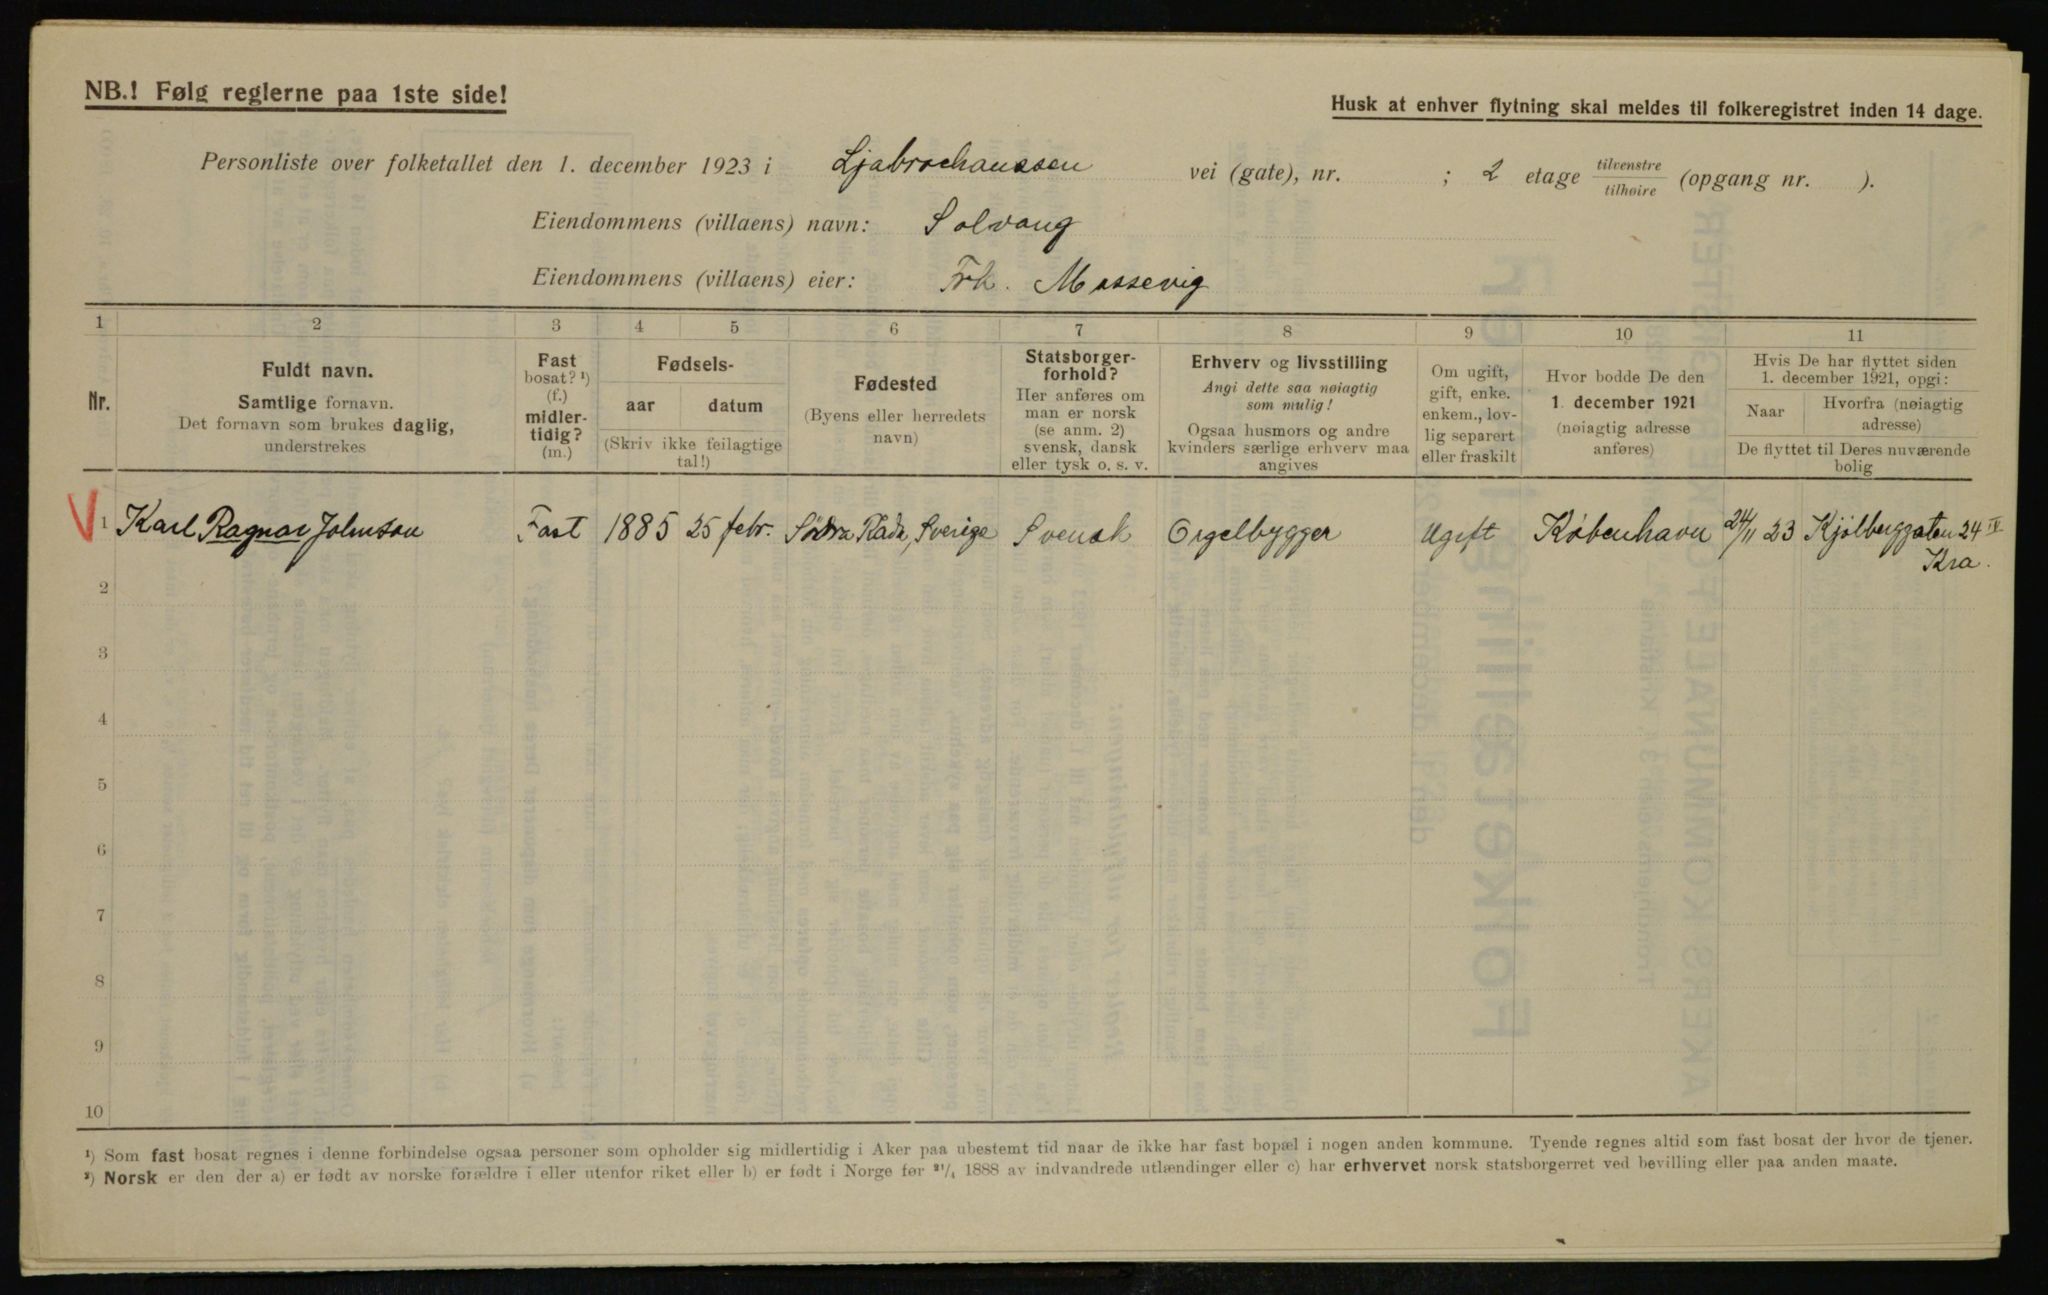 NB.! Følg reglerne paa 1ste side!
Husk at enhver flytning skal meldes til folkeregistret inden 14 dage.
Personliste over folketallet den 1. december 1923 i Ljabrochaussen vei (gate), nr. ; 2 etage tilvenstre tilhøire (opgang nr. ).
Eiendommens (villaens) navn: Solvang
Eiendommens (villaens) eier: Frk. Mossevig
1 2 3 4 5 6 7 8 9 10 11
Nr.
Fuldt navn.
Samtlige fornavn.
Det fornavn som brukes daglig,
understrekes
Fast
bosat? ¹)
(f.)
midler-
tidig?
(m.)
Fødsels-
aar datum
(Skriv ikke feilagtige
tal!)
Fødested
(Byens eller herredets
navn)
Statsborger-
forhold?
Her anføres om
man er norsk
(se anm. 2)
svensk, dansk
eller tysk o. s. v.
Erhverv og livsstilling
Angi dette saa nøiagtig
som mulig!
Ogsaa husmors og andre
kvinders særlige erhverv maa
angives
Om ugift,
gift, enke.
enkem., lov-
lig separert
eller fraskilt
Hvor bodde De den
1. december 1921
(nøiagtig adresse
anføres)
Hvis De har flyttet siden
1. december 1921, opgi:
Naar
Hvorfra (nøiagtig
adresse)
De flyttet til Deres nuværende
bolig
V 1 Karl Ragnar Johnson Fast 1885 25 febr. Södra Råda, Sverige Svensk Orgelbygger Ugift København 24/11 23 Kjölberggaten 24 IV
Kra.
2
3
4
5
6
7
8
9
10
¹) Som fast bosat regnes i denne forbindelse ogsaa personer som opholder sig midlertidig i Aker paa ubestemt tid naar de ikke har fast bopæl i nogen anden kommune. Tyende regnes altid som fast bosat der hvor de tjener.
²) Norsk er den der a) er født av norske forældre i eller utenfor riket eller b) er født i Norge før ²¹/₄ 1888 av indvandrede utlændinger eller c) har erhvervet norsk statsborgerret ved bevilling eller paa anden maate.